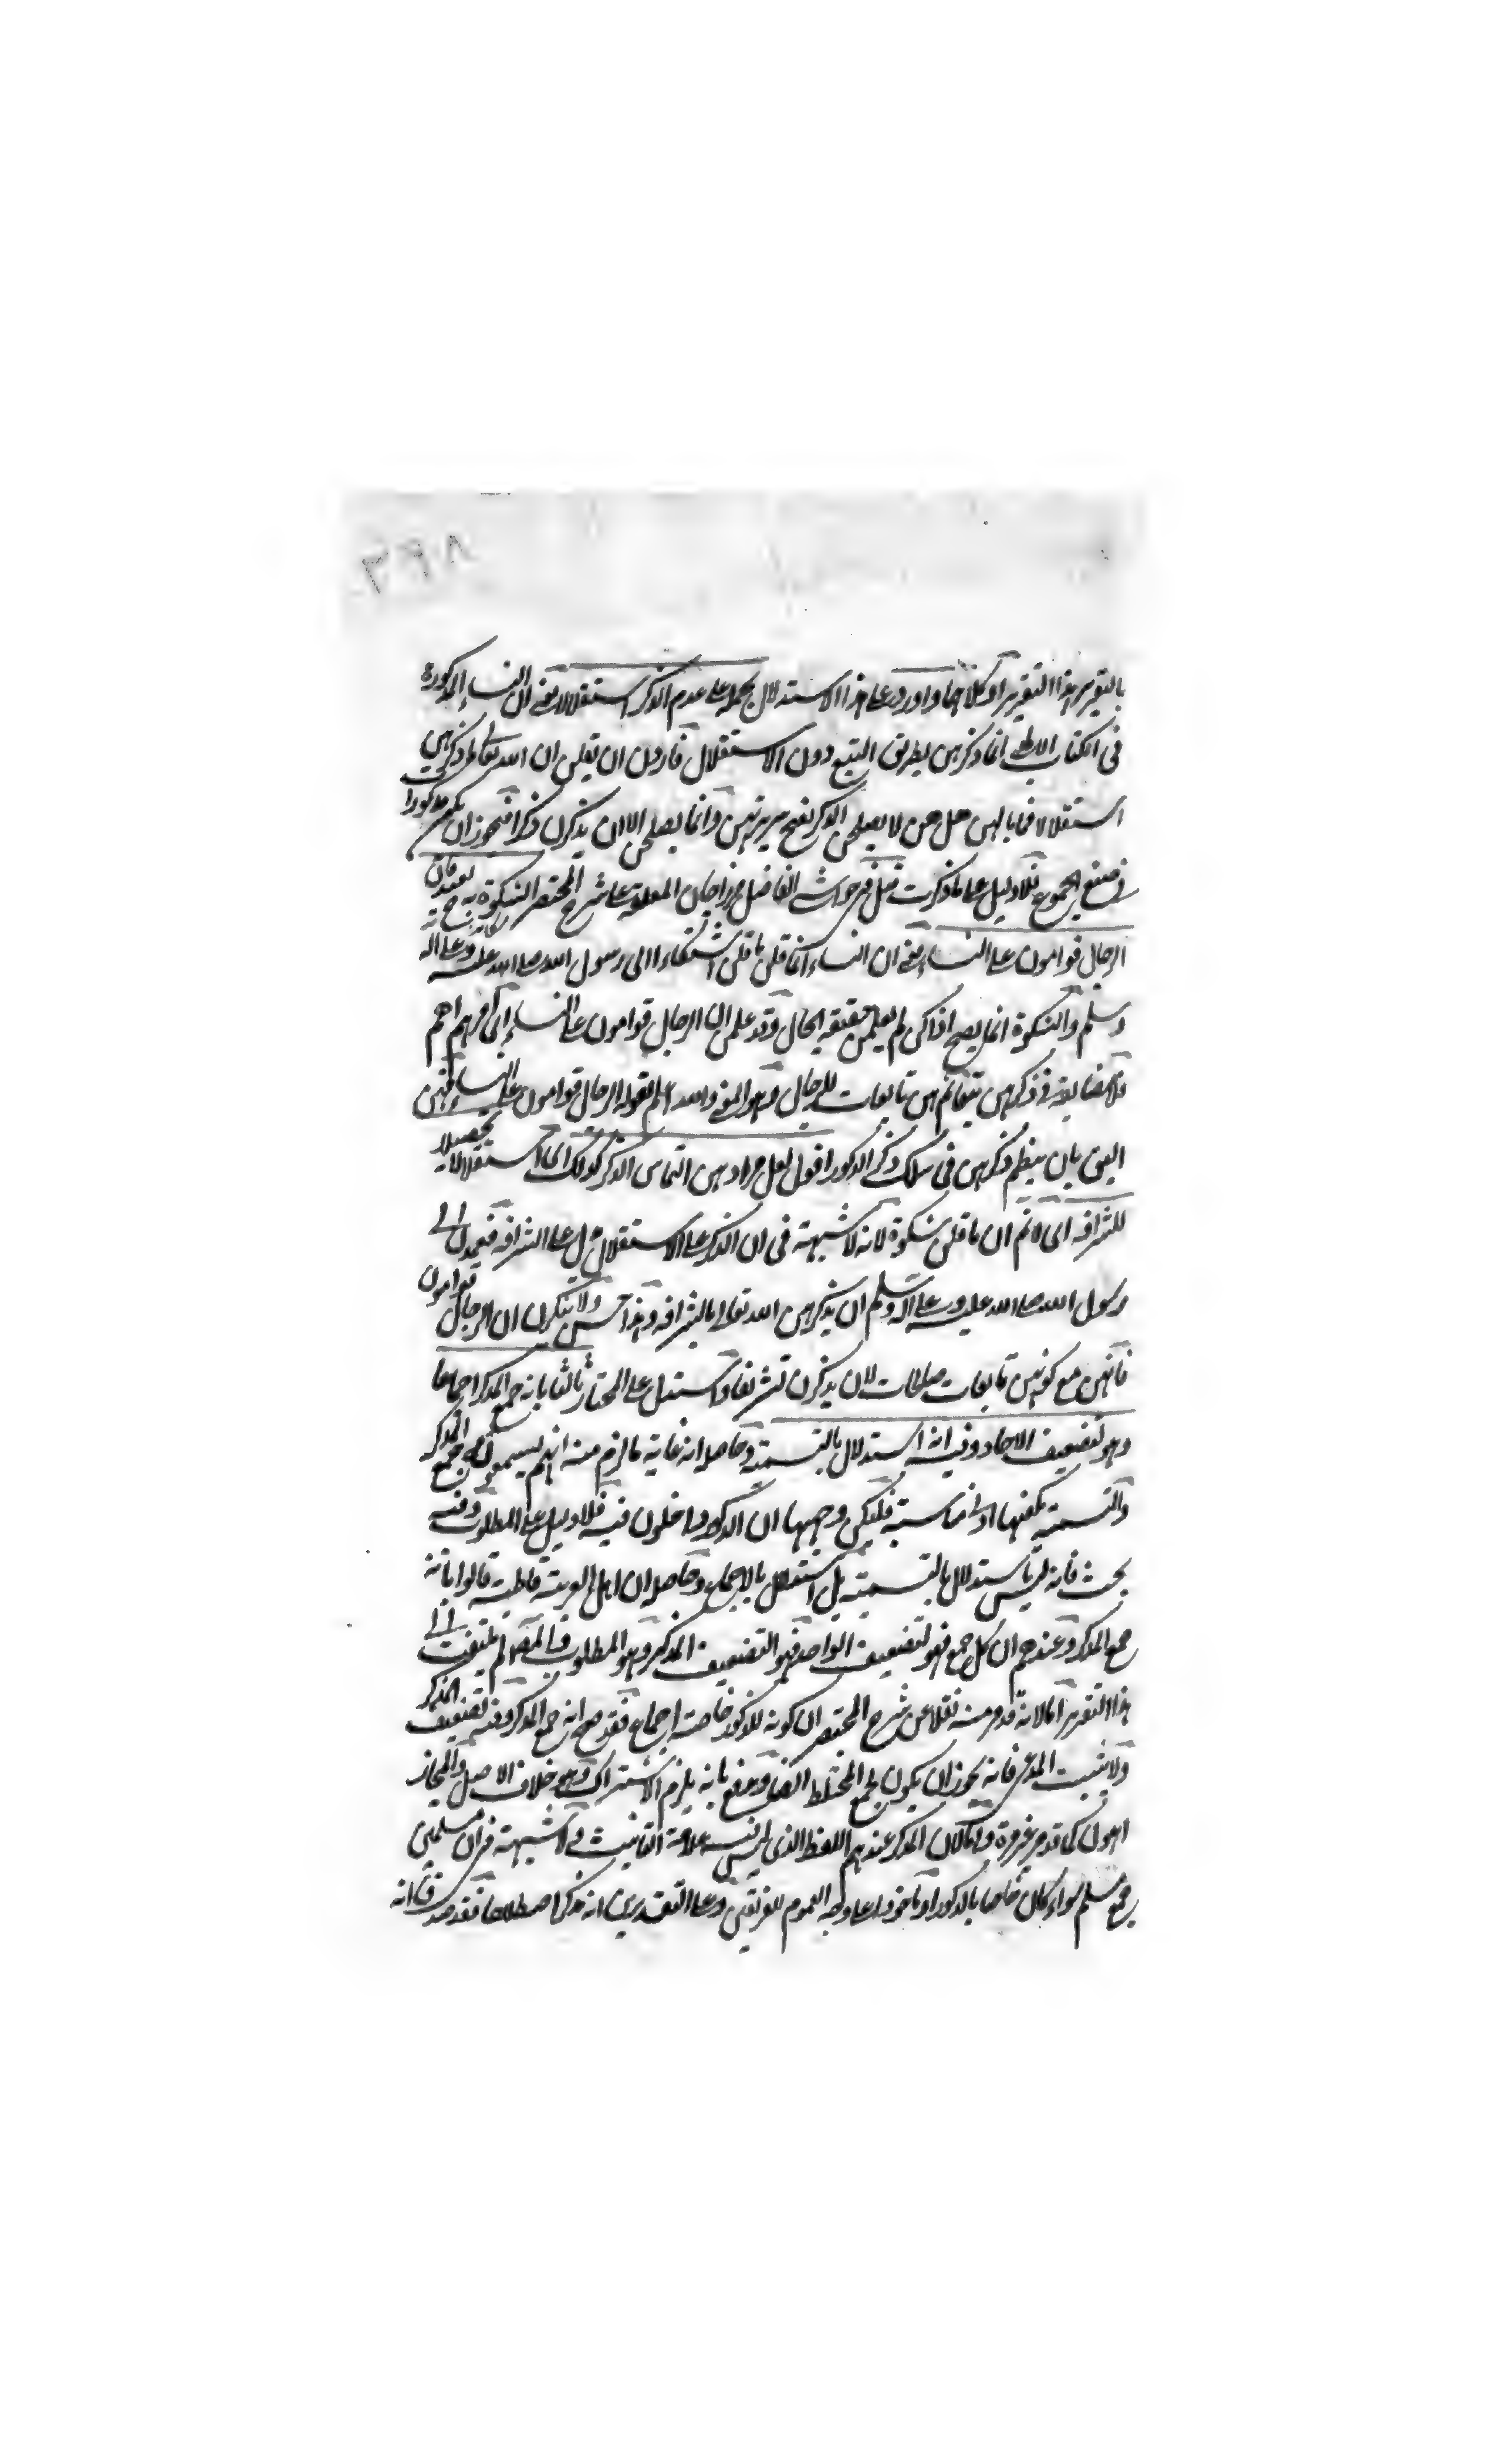 ٣٩٨
بالتقرير هذا التقرير او كلاهما واورد على هذا الاستدلال بحمله على عدم الذكر استقلالا يعني ان النساء المذكورة
في الكتاب انما ذكرهن بطريق التبع دون الاستقلال فاردن ان يقلن ان الله تعالى لم يذكرهن
استقلالا فما بالهن هل هن لا يصلحن الذكر لقبح سريرتهن وانما يصلحن لان يذكرن ذكرا فيجوز ان يكون مذكورا
في صيغ الجموع فلا دليل على ما ذكرت قيل في حواشي الفاضل مرزاجان المعلقة على شرح المختصر الشكوة بعيد فان
الرجال قوامون على النساء يعني ان النساء انما قلن ما قلن اشتكاء الى رسول الله صلى الله عليه وعلى اله
وسلم والشكوة انما يصح اذا كن لم يعلمن حقيقة الحال وقد علمن ان الرجال قوامون على النساء
فلا مضايقة في ذكرهن تبعا لانهن تابعات للرجال وهو المعني والله اعلم لقوله الرجال قوامون على النساء
بان ينظم ذكرهن في سلك ذكر الذكور اقول لعل مرادهن التماس الذكر استقلالا تحصيلا
للشرافة اي لا نم ان ما قلن شكوة لانه لا شبهة في ان الذكر على الاستقلال يدل على الشرافة الى
رسول الله صلى الله عليه وعلى اله وسلم ان يذكرهن الله تعالى بالشرافة وهذا حسن ولا ينكرن ان الرجال قوامون
فانهن مع كونهن تابعات صالحات لان يذكرن تشريفا واستدل على المختار ثالثا بانه جمع المذكر اجماعا
وهو تضعيف الاحاد وفيه انه استدلال بالتسمية وحاصله انه غاية ما لزم منه انهم يسمونه جمع المذكر
والتسمية يكفيها ادنى مناسبة فليكن وجهها ان الذكور داخلون فيه فلا دليل على المطلوب وفيه
بحث فانه ليس استدلال بالتسمية بل استدلال بالاجماع وحاصله ان اهل العربية قاطبة قالوا بانه
جمع المذكر وعندهم ان كل جمع فهو لتضعيف الواحد فهو لتضعيف المذكر وهو المطلوب والمص لم يلتفت الى
هذا التقرير اما لانه قد مر منه نقلا عن شرح المختصر ان كونه للذكور خاصة اجماع فقد صح انه جمع المذكر وفيه تضعيف المذكر
ولا يثبت المدعى فانه يجوز ان يكون لجمع المختلط ايضا ودفع بانه يلزم الاشتراك وهو خلاف الاصل والمجاز
اهون كما قد مر غير مرة واما لان المذكر عندهم اللفظ الذي ليس فيه علامة التانيث ولا شبهة في ان مسلمين
جمع مسلم سواء كان خاصا بالذكور او ماخوذا على وجه العموم للفريقين وعلى التقديرين انه مذكر اصطلاحا فقد صدق انه